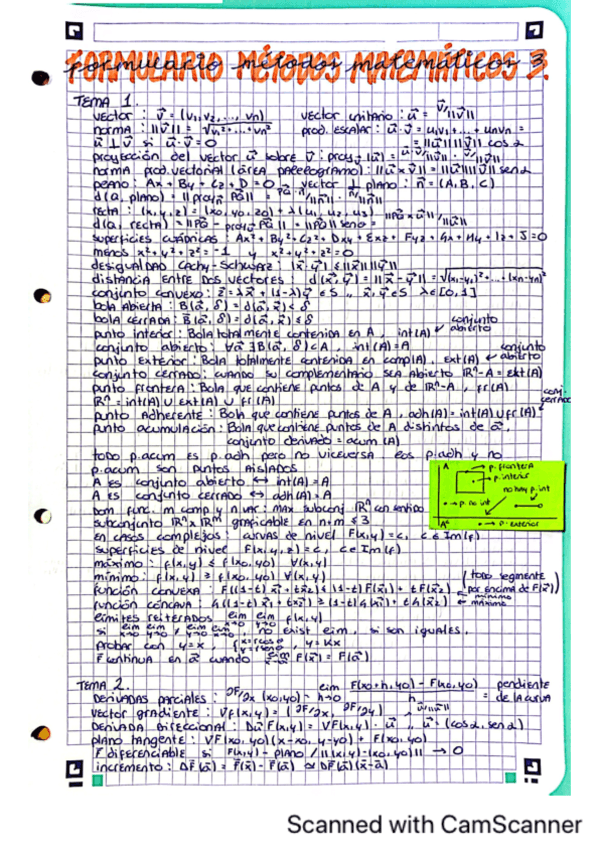 FORMULARIO MÉTODOS MATEMÁTICOS 3.
TEMA 1.
vector : v⃗ = (v₁,v₂,..., vn) vector unitario : u⃗ = v⃗/||v⃗||
norma : ||v⃗|| = √v₁²+...+vn² prod. escalar : u⃗·v⃗ = u₁v₁+...+unvn =
u⃗ ⊥ v⃗ si u⃗·v⃗ = 0 = ||u⃗|| ||v⃗|| cos α
proyección del vector u⃗ sobre v⃗ :
norma prod. vectorial (área paralelogramo) : ||u⃗ x v⃗|| = ||u⃗|| ||v⃗|| sen α
plano : Ax + By + Cz + D = 0 vector ⊥ plano : n⃗ = (A, B, C)
d(Q, plano) =
recta : (x, y, z) = (x0, y0, z0) + λ(u1, u2, u3)
d(Q, recta) =
superficies cuádricas : Ax² + By² + Cz² + Dxy + Exz + Fyz + Gx + Hy + Iz + J = 0
menos x²+y²+z² = -1 y x²+y²+z² = 0
desigualdad Cachy-Schwarz : |x⃗·y⃗| ≤ ||x⃗|| ||y⃗||
distancia entre dos vectores : d(x⃗,y⃗) = ||x⃗ - y⃗|| = √(x₁-y₁)²+...+(xn-yn)²
conjunto convexo : z⃗ = λx⃗ + (1-λ)y⃗ ∈ S ,, x⃗, y⃗ ∈ S λ ∈ [0,1]
bola abierta : B(a⃗, δ) = d(a⃗, x⃗) < δ
bola cerrada : B̄(a⃗, δ) = d(a⃗, x⃗) ≤ δ
punto interior : Bola totalmente contenida en A , int(A) ↙ conjunto abierto
conjunto abierto : ∀a⃗ ∃B(a⃗, δ) ⊂ A , int(A) = A
punto exterior : Bola totalmente contenida en comp(A), ext(A) ↙ conjunto abierto
conjunto cerrado : cuando su complementario sea abierto ℝⁿ-A = ext(A)
punto frontera : Bola que contiene puntos de A y de ℝⁿ-A , fr(A)
ℝⁿ = int(A) ∪ ext(A) ∪ fr(A) conj. cerrado
punto adherente : Bola que contiene puntos de A , adh(A) = int(A) ∪ fr(A)
punto acumulación : Bola que contiene puntos de A distintos de a⃗,
conjunto derivado = acum (A)
todo p.acum es p.adh pero no viceversa. Los p.adh y no
p.acum son puntos aislados
A es conjunto abierto ↔ int(A) = A
A es conjunto cerrado ↔ adh(A) = A
A → p.frontera
→ p.interior
no hay p.int
→ p.no int
→ p. exterior
Dom func. m comp y n var : max subconj ℝⁿ con sentido
subconjunto ℝⁿ x ℝᵐ graficable en n+m ≤ 3
en casos complejos : curvas de nivel F(x,y) = c, c ∈ Im(f)
superficies de nivel F(x,y,z) = c, c ∈ Im(f)
máximo : f(x,y) ≤ f(x0,y0) ∀(x,y)
mínimo : f(x,y) ≥ f(x0,y0) ∀(x,y)
función convexa : F((1-t)x⃗₁ + tx⃗₂) ≤ (1-t)F(x⃗₁) + tF(x⃗₂) (todo segmente por encima de F(x⃗))
← mínimo
función cóncava : h((1-t)x⃗₁ + tx⃗₂) ≥ (1-t)h(x⃗₁) + th(x⃗₂) ← máximo
límites reiterados lim lim f(x,y)
si lim lim ≠ lim lim , no exist lim, si son iguales,
probar con y = x , {x=r cos θ y=r sen θ , y = Kx
F continua en a⃗ cuando lim F(x⃗) = F(a⃗)
TEMA 2.
Derivadas parciales : ∂F/∂x (x0,y0) = lim h→0 F(x0+h, y0) - F(x0,y0) / h = pendiente de la curva
vector gradiente : ∇f(x,y) = (∂F/∂x, ∂F/∂y)
Derivada direccional : Du⃗ F(x,y) = ∇F(x,y) · u⃗ , u⃗ = (cos α, sen α)
plano tangente : ∇F(x0,y0)(x-x0, y-y0) + F(x0,y0)
F diferenciable si F(x,y) - plano / ||(x,y)-(x0,y0)|| → 0
incremento : ΔF⃗(a⃗) = F⃗(x⃗) - F⃗(a⃗) ≃ DF⃗(a⃗)(x⃗-a⃗)
Scanned with CamScanner